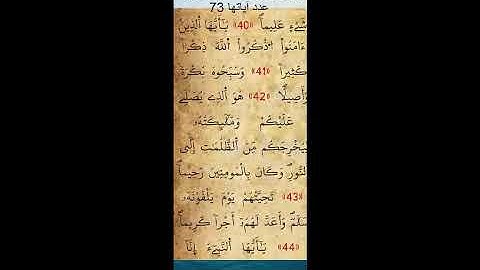 عدد آياتها 73
شَيْءٍ عَلِيماًۖ ﴿40﴾ يَٰٓأَيُّهَا اَ۬لذِينَ
ءَامَنُواْ اُ۟ذْكُرُواْ اُ۬للَّهَ ذِكْراٗ
كَثِيراٗ ﴿41﴾ وَسَبِّحُوهُ بُكْرَةٗ
وَأَصِيلاًۖ ﴿42﴾ هُوَ اَ۬لذِے يُصَلِّے
عَلَيْكُمْ وَمَلَٰٓئِكَتُهُۥ
لِيُخْرِجَكُم مِّنَ اَ۬لظُّلُمَٰتِ إِلَى
اَ۬لنُّورِۖ وَكَانَ بِالْمُومِنِينَ رَحِيماٗۖ
﴿43﴾ تَحِيَّتُهُمْ يَوْمَ يَلْقَوْنَهُۥ
سَلَٰمٞۖ وَأَعَدَّ لَهُمُۥٓ أَجْراٗ كَرِيماٗۖ
﴿44﴾ يَٰٓأَيُّهَا اَ۬لنَّبِےٓءُ اِ۪نَّآ